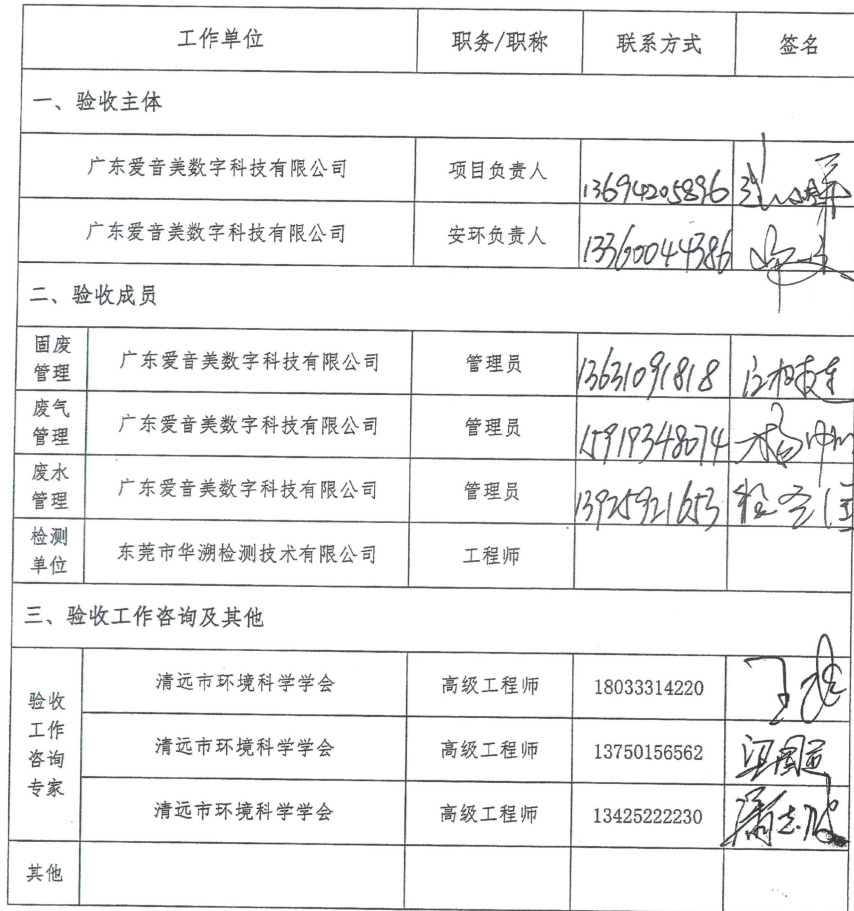 工作单位 职务/职称 联系方式 签名
一、验收主体
广东爱音美数字科技有限公司 项目负责人 13694205896
广东爱音美数字科技有限公司 安环负责人 13360044386
二、验收成员
固废
管理 广东爱音美数字科技有限公司 管理员 13631091818
废气
管理 广东爱音美数字科技有限公司 管理员 15919348074
废水
管理 广东爱音美数字科技有限公司 管理员 13925921653
检测
单位 东莞市华溯检测技术有限公司 工程师
三、验收工作咨询及其他
验收
工作
咨询
专家
清远市环境科学学会 高级工程师 18033314220
清远市环境科学学会 高级工程师 13750156562
清远市环境科学学会 高级工程师 13425222230
其他